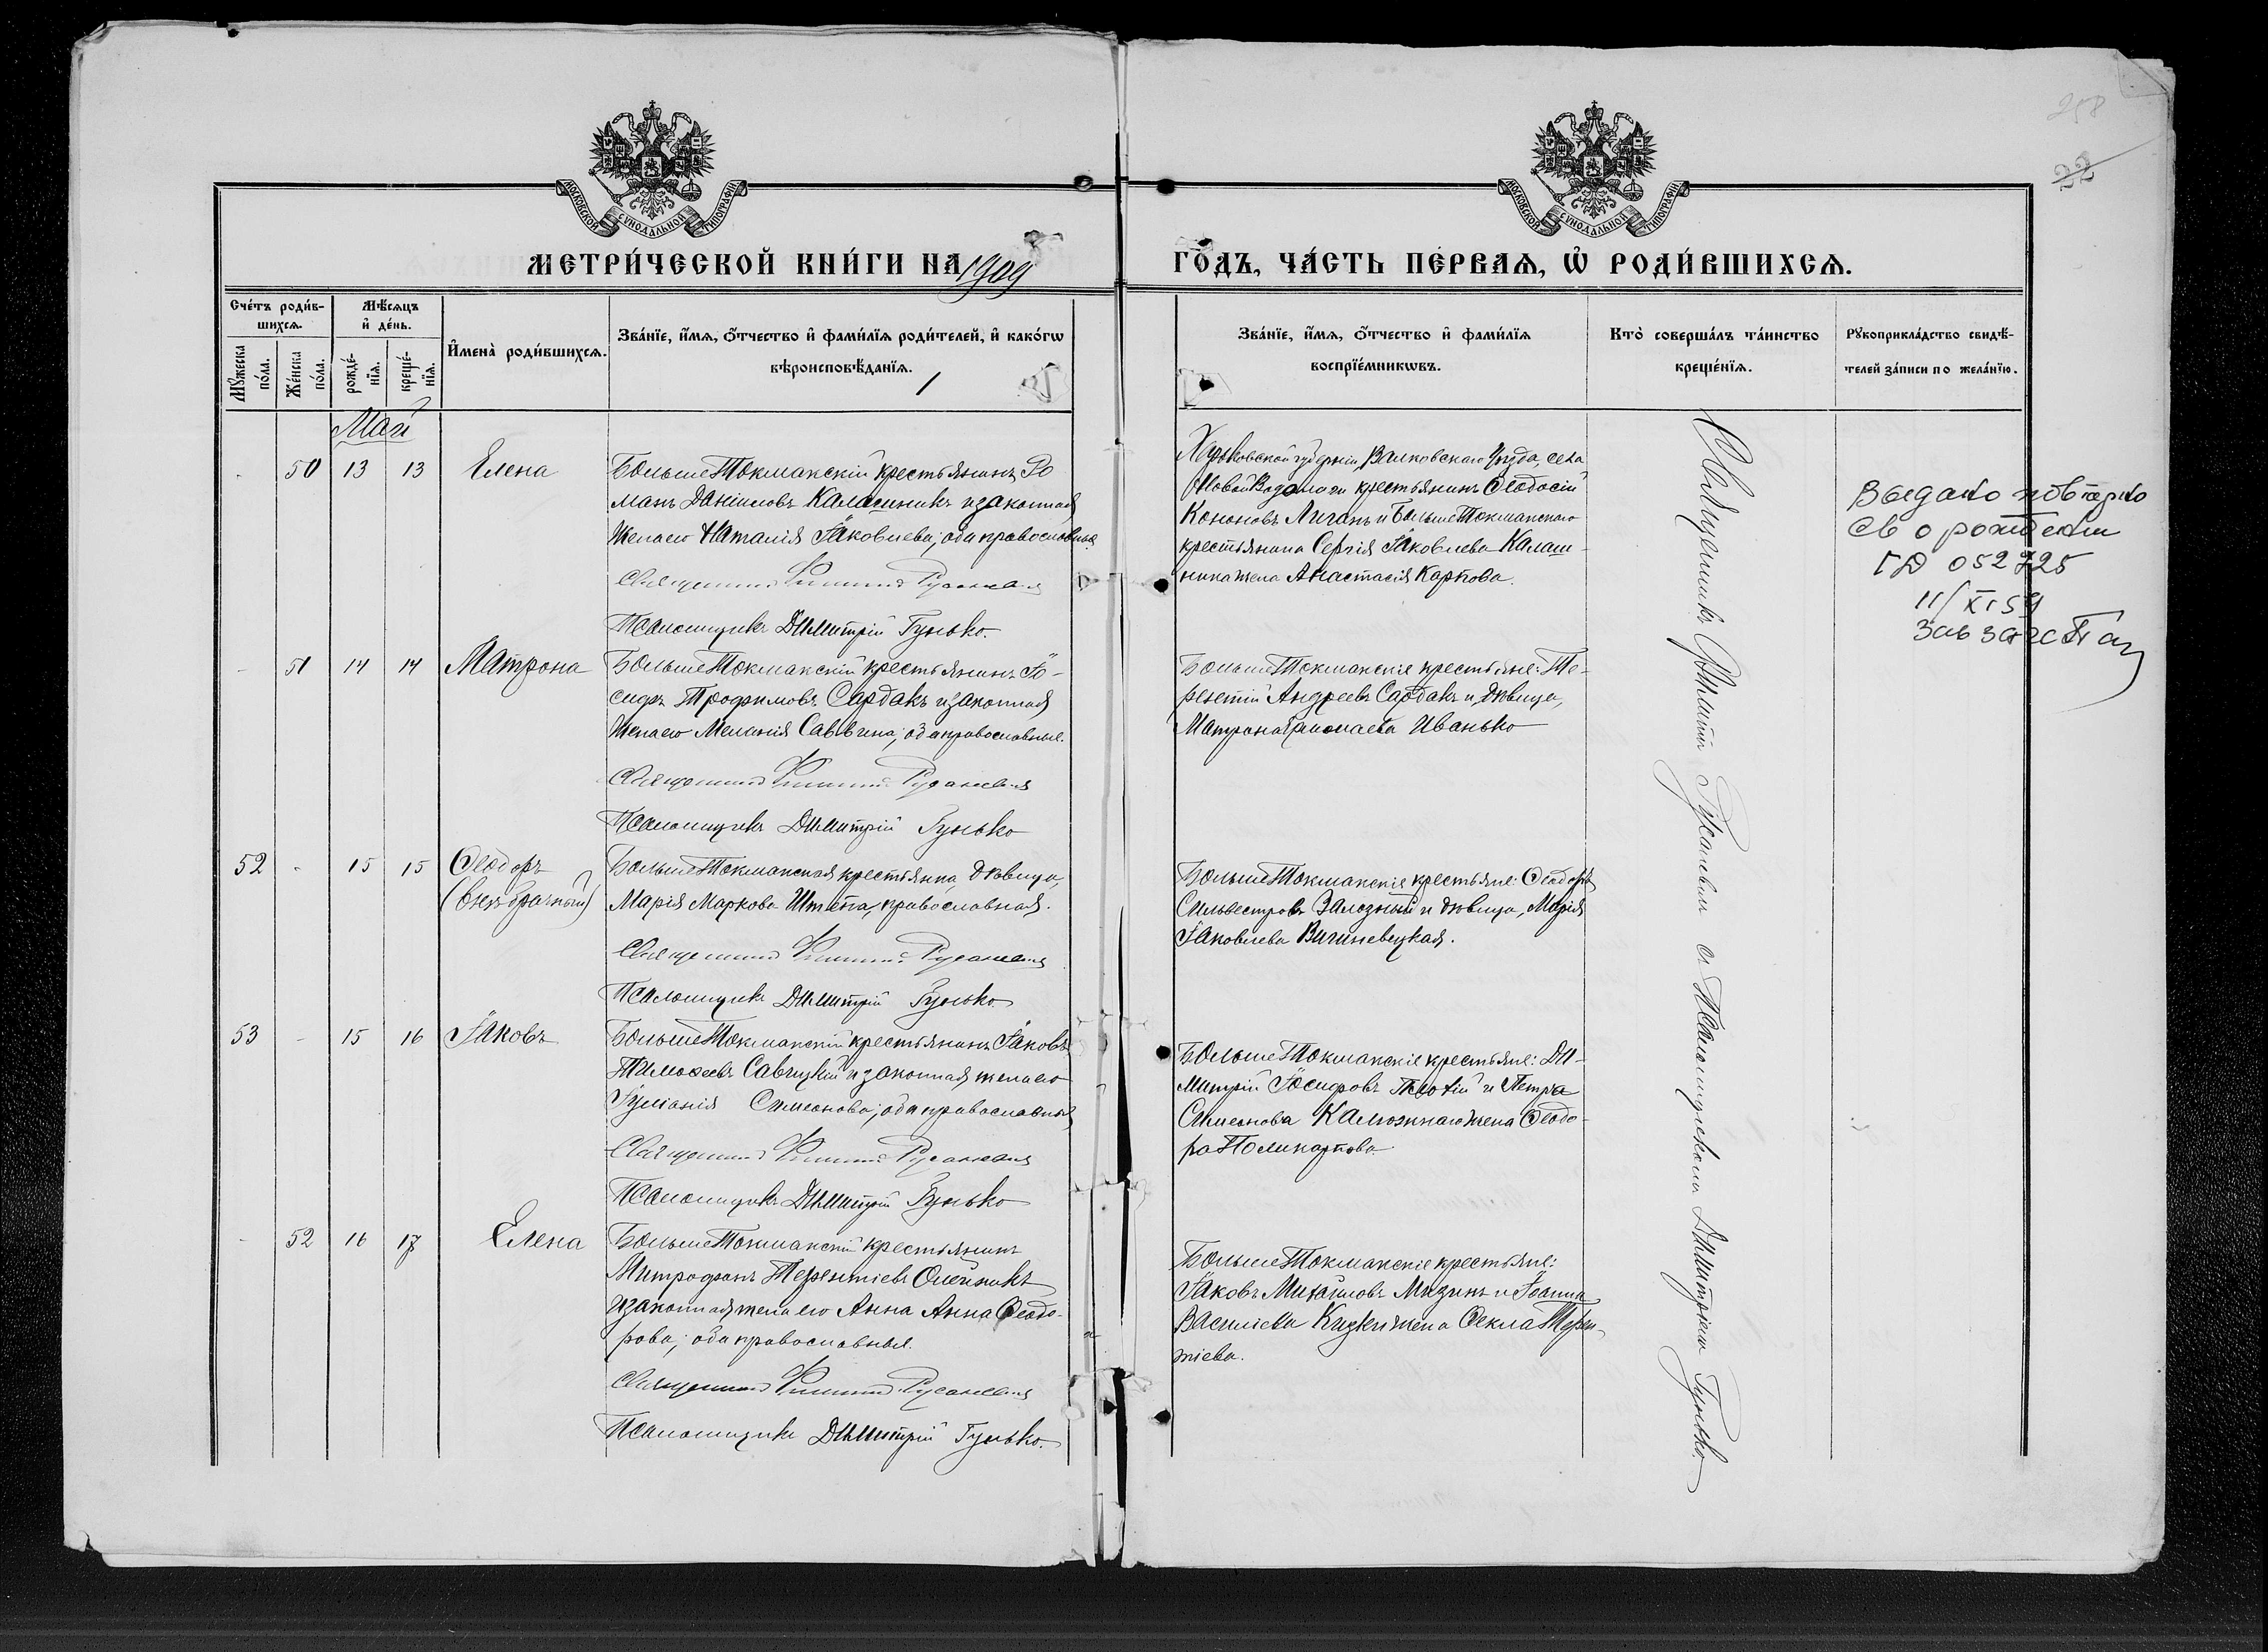 258
22
МОСКОВСКОЙ СѴНОДАЛЬНОЙ ТИПОГРАФІИ
МОСКОВСКОЙ СѴНОДАЛЬНОЙ ТИПОГРАФІИ
МЕТРИ́ЧЕСКОЙ КНИ́ГИ НА 1909
ГО́ДЪ, ЧА́СТЬ ПЕ́РВАѦ, Ѡ҆ РОДИ́ВШИХСѦ.
Сче́тъ роди́в-
шихсѧ.
Мѣ́сѧцъ
и҆ де́нь.
Мꙋ́жеска
по́ла.
Же́нска
по́ла.
рожде́-
нїѧ.
креще́-
нїѧ.
И҆мена̀ роди́вшихсѧ.
Зва́нїе, и҆́мѧ, ѻ҆́тчество и҆ фами́лїѧ роди́телей, и҆ како́гѡ
вѣроисповѣ́данїѧ.
Зва́нїе, и҆́мѧ, ѻ҆́тчество и҆ фами́лїѧ
воспрїе́мникѡвъ.
Кто̀ соверша́лъ та́инство
креще́нїѧ.
Рꙋкоприкла́дство свидѣ́-
телей за́писи по жела́нїю.
Май
- 50 13 13 Елена
БольшеТокмакскій крестьянинъ Ро
манъ Даніиловъ Калашникъ и законная
жена его Наталія Іаковлева; оба православные.
Священникъ Филиппъ
Псаломщикъ Димитрій Гунько.
Харьковской губерніи, Валковскаго уѣзда, села
Новой Водолаги крестьянинъ Ѳеодосій
Кононовъ Личанъ и БольшеТокмакскаго
крестьянина Сергія Іаковлева Калаш-
ника жена Анастасія Карпова.
Выдано повторно
св о рождении
ГД 052725
11/XI 59
Зав загс
- 51 14 14 Матрона
БольшеТокмакскій крестьянинъ Іо-
сифъ Трофимовъ Сардакъ и законная
жена его Меланія Саввина; оба православные.
Священникъ Филиппъ
Псаломщикъ Димитрій Гунько
БольшеТокмакскіе крестьяне: Те-
рентій Андреевъ Сардакъ и дѣвица,
Матрона Иванько
52 - 15 15 Ѳеодоръ
(внѣбрачный)
БольшеТокмакская крестьянка, дѣвица,
Марія Маркова Штепа, православная.
Священникъ Филиппъ
Псаломщикъ Димитрій Гунько
БольшеТокмакскіе крестьяне: Ѳеодоръ
Сильвестровъ Зализный и дѣвица, Марія
Іаковлева Вишневецкая.
53 - 15 16 Іаковъ
БольшеТокмакскій крестьянинъ Іаковъ
Тимоѳеевъ Савицкій и законная жена его
Іуліанія Симеонова; оба православные
Священникъ Филиппъ
Псаломщикъ Димитрій Гунько
БольшеТокмакскіе крестьяне: Ди-
митрій Іосифовъ и Петра
Симеонова Калюжнаго жена Ѳеодо-
ра Поликарпова.
- 52 16 17 Елена
БольшеТокмакскій крестьянинъ
Митрофанъ Терентіевъ Олейникъ
и законная жена его Анна Анна Ѳеодо-
рова; оба православные.
Священникъ Филиппъ
Псаломщикъ Димитрій Гунько.
БольшеТокмакскіе крестьяне:
Іаковъ Михаиловъ Мизинъ и Іоанна
Василіева жена Ѳекла Терен-
тіева.
Священникъ Филиппъ съ Псаломщикомъ Димитріемъ Гунько.